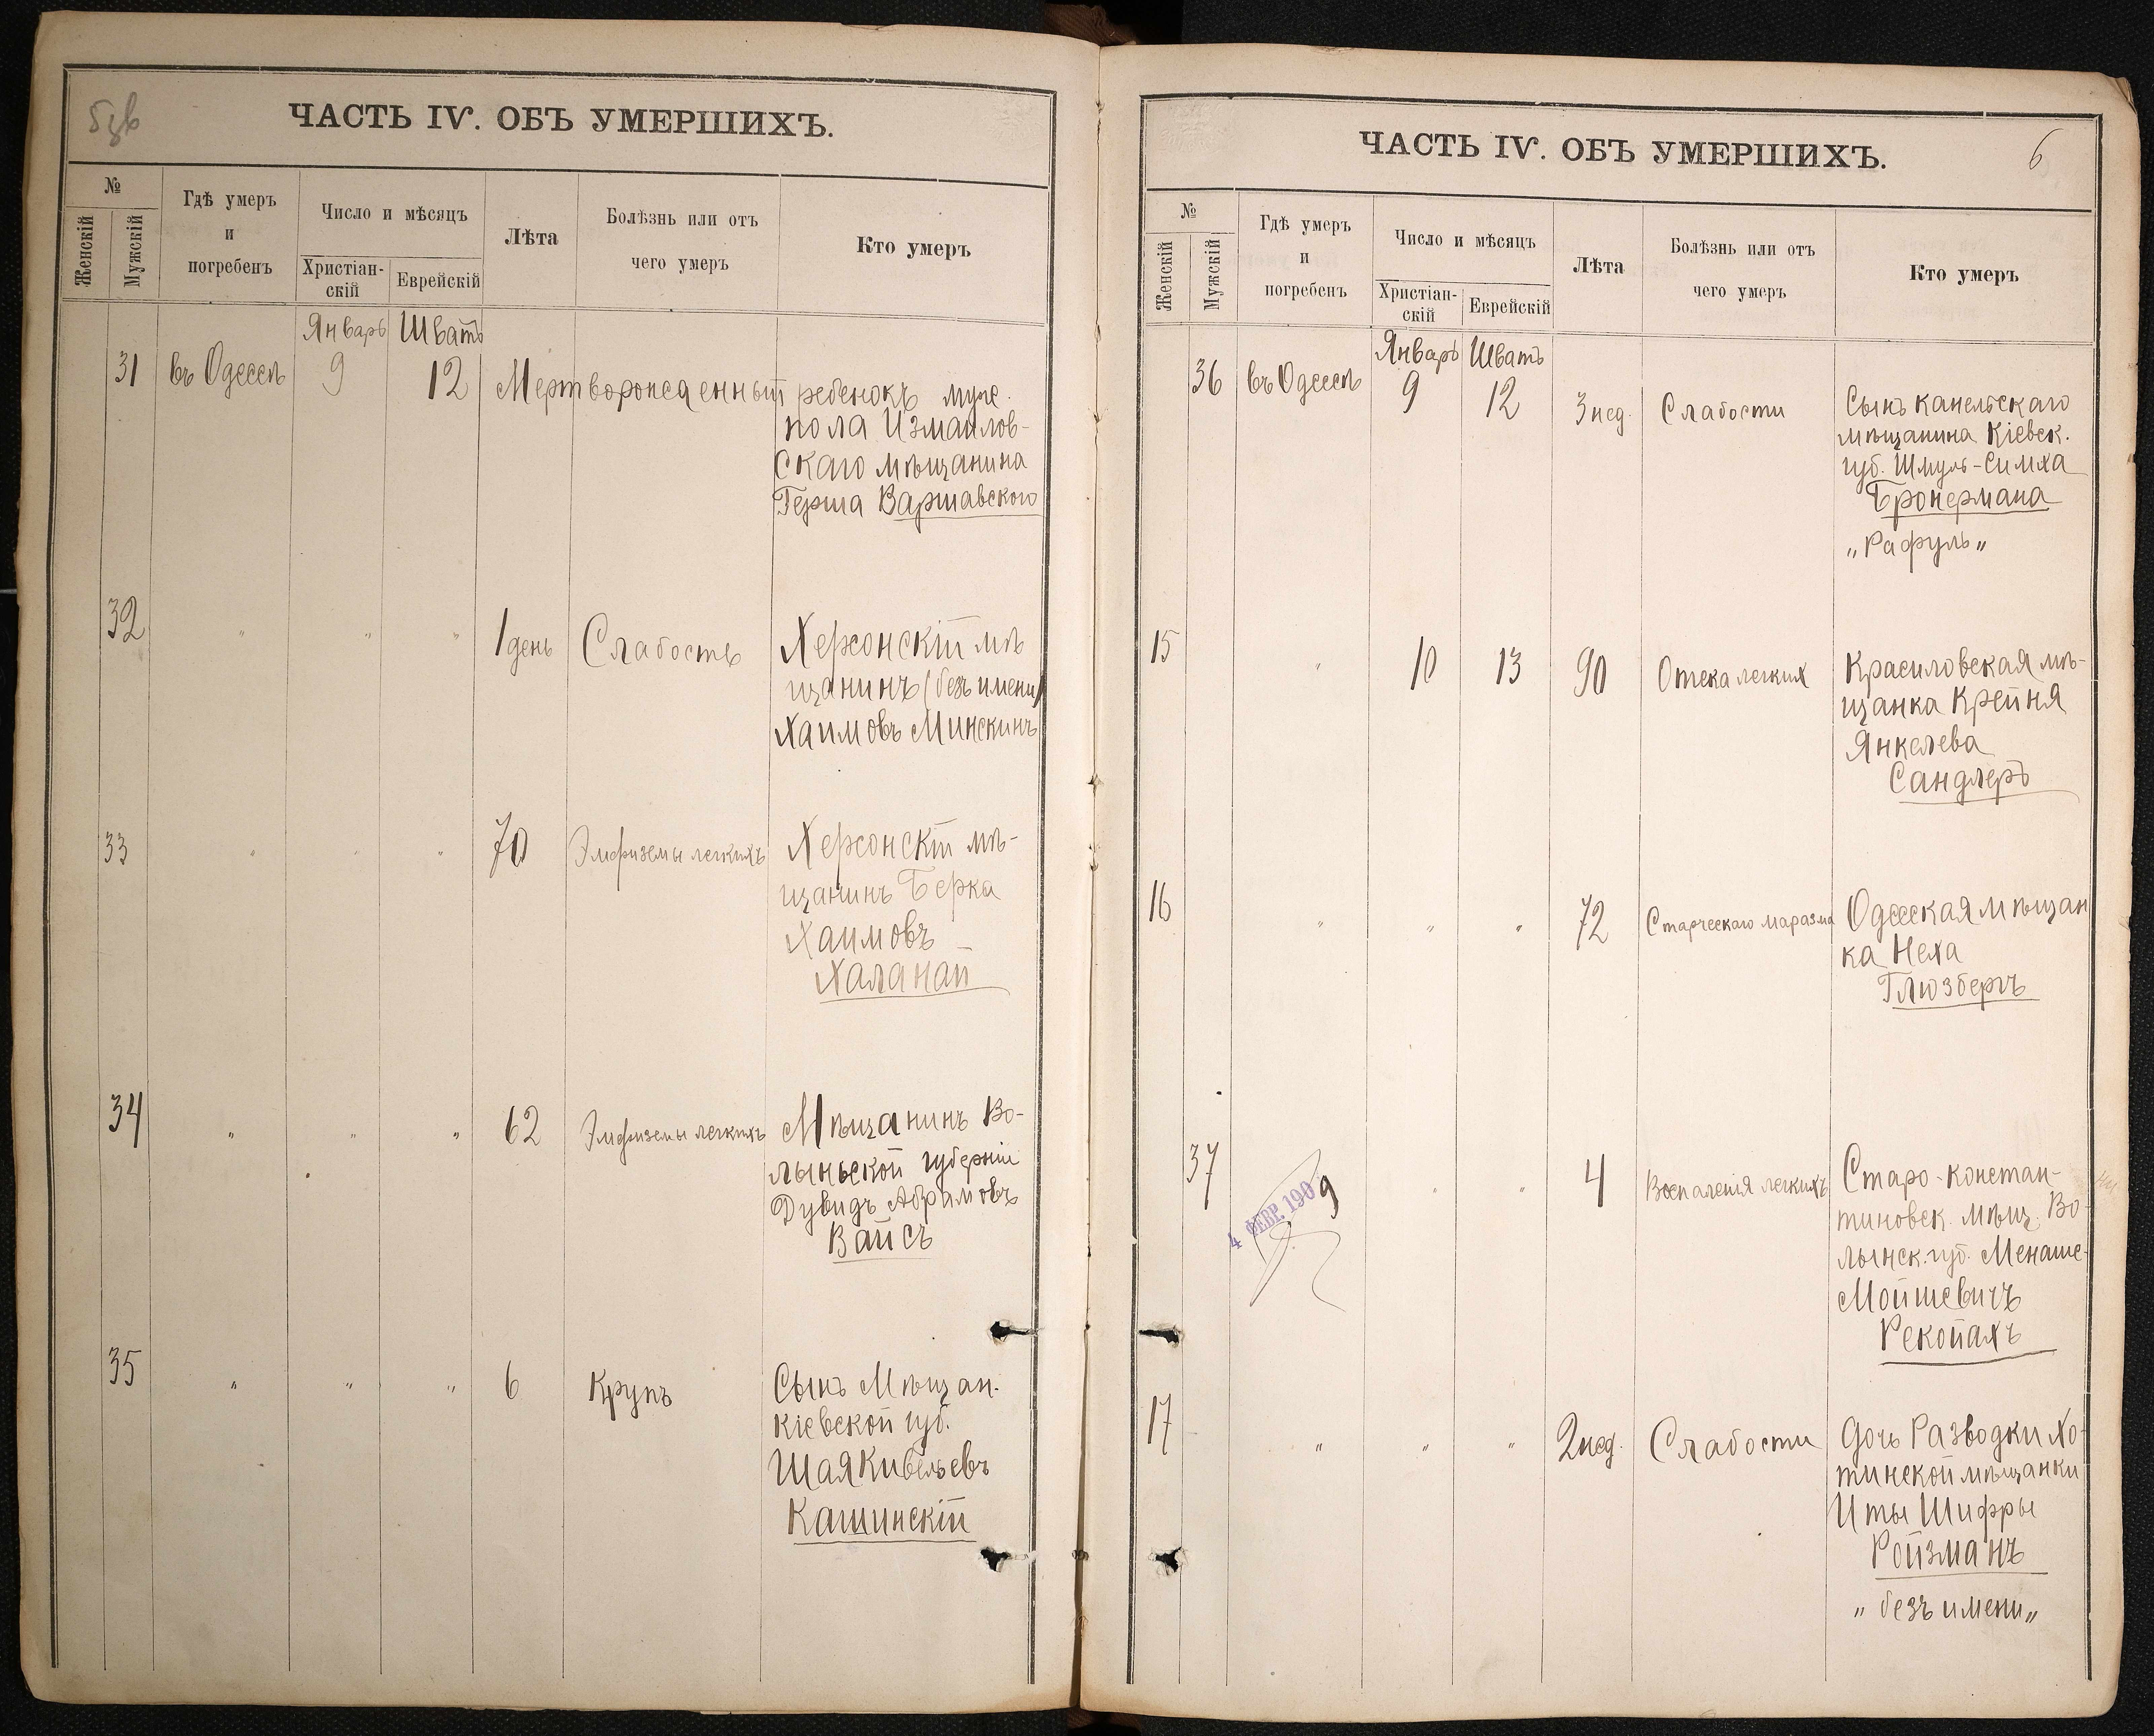 5зв
ЧАСТЬ IV. ОБЪ УМЕРШИХЪ.
№
Женскій
Мужскій
Гдѣ умеръ
и
погребенъ
Число и мѣсяцъ
Христіан-
скій
Еврейскій
Лѣта
Болѣзнь или отъ
чего умеръ
Кто умеръ
Январь Шватъ
31 въ Одессѣ 9 12 Мертворожденный ребенокъ муж.
пола Измаилов-
скаго мѣщанина
Герша Варшавского
32 " " " 1 день Слабость Херсонскій мѣ
щанинъ (безъ имени)
Хаимовъ Минскинъ
33 " " " 70 Эмфиземы легкихъ Херсонскій мѣ-
щанинъ Берка
Хаимовъ
Халанай
34 " " " 62 Эмфиземы легкихъ Мѣщанинъ Во-
лыньской губерніи
Дувидъ Абрамовъ
Вайсъ
35 " " " 6 Крупъ Сынъ Мѣщан.
Кіевской губ.
Шая Кивельевъ
Кашинскій
ЧАСТЬ IV. ОБЪ УМЕРШИХЪ.
6
№
Женскій
Мужскій
Гдѣ умеръ
и
погребенъ
Число и мѣсяцъ
Христіан-
скій
Еврейскій
Лѣта
Болѣзнь или отъ
чего умеръ
Кто умеръ
Январь Шватъ
36 въ Одессѣ 9 12 3 нед. Слабости Сынъ Канельскаго
мѣщанина Кіевск.
губ. Шмуль-Симха
Бронермана
„Рафуль„
15 " 10 13 90 Отека легких Красиловская мѣ-
щанка Крейня
Янкелева
Сандлеръ
16 " " " 72 Старческаго маразма Одесская мѣщан
ка Неха
Глюзбергъ
37 " " 4 Воспаленія легкихъ Старо-констан-
тиновск. мѣщ. Во-
лынск. губ. Менаше-
Мойшевичъ
Рекопахъ
4 ФЕВР. 1909
17 " " " 2 нед. Слабости Дочь Разводки Хо-
тинской мѣщанки
Иты Шифры
Ройзманъ
„безъ имени„